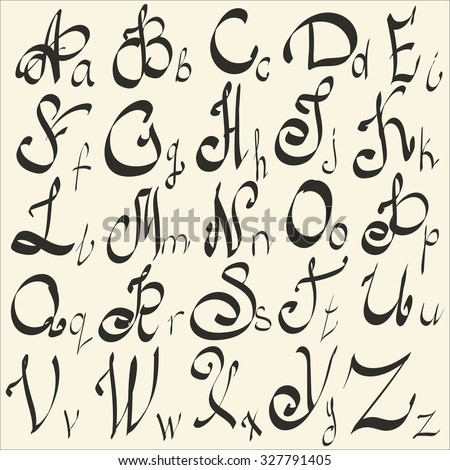 Aa Bb Cc Dd Ee
Ff Gg Hh Jj Kk
Ll Mm Nn Oo Pp
Qq Rr Ss Tt Uu
Vv Ww Xx Yy Zz
www.shutterstock.com · 327791405